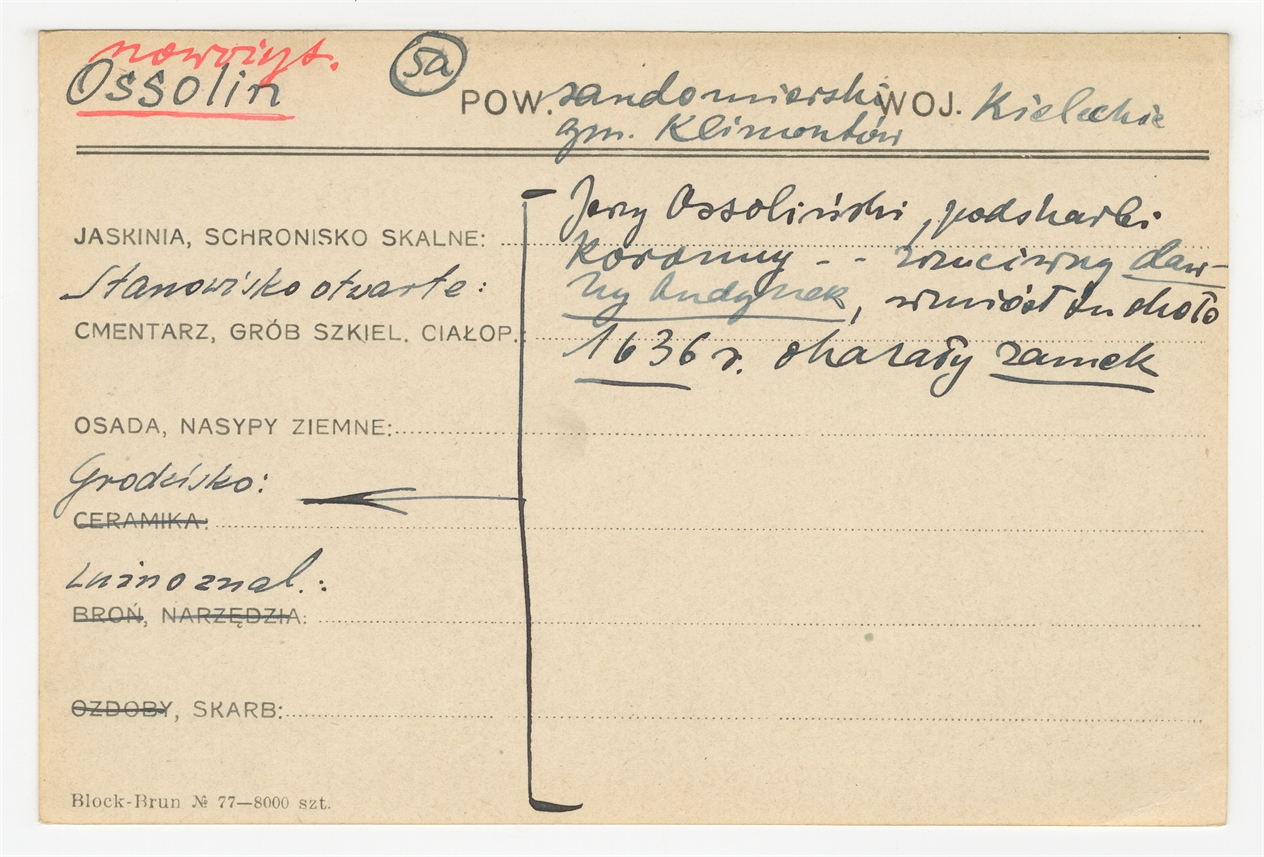 nowożyt.
Ossolin
5a
POW. sandomierski WOJ. Kieleckie
gm. Klimontów
Jerzy Ossoliński, podskarbi
JASKINIA, SCHRONISKO SKALNE:
koronny - - zrzuciwszy daw-
Stanowisko otwarte:
ny budynek, wzniósł tu około
CMENTARZ, GRÓB SZKIEL. CIAŁOP.:
1636 r. okazały zamek
OSADA, NASYPY ZIEMNE:
Grodzisko:
CERAMIKA:
Luźno znal.:
BROŃ, NARZĘDZIA:
OZDOBY, SKARB:
Block-Brun № 77—8000 szt.